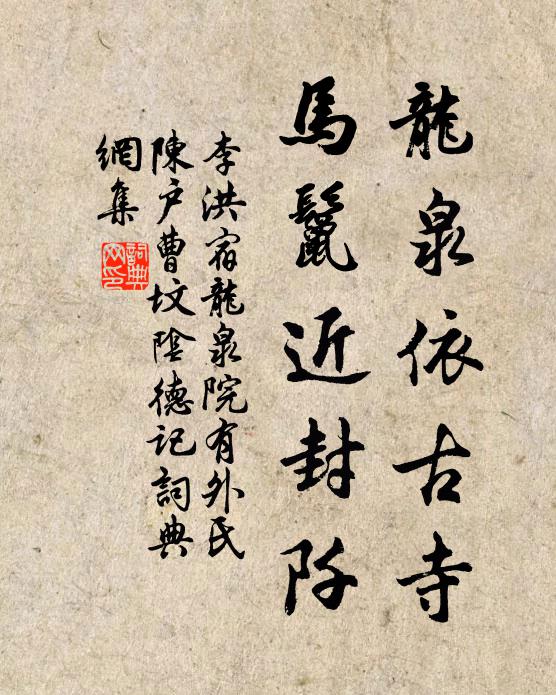 龍泉依古寺
馬鬛近封阡
李洪宿龍泉院有外氏
陳戶曹墳陰德記詞典
網集
詞典
网印